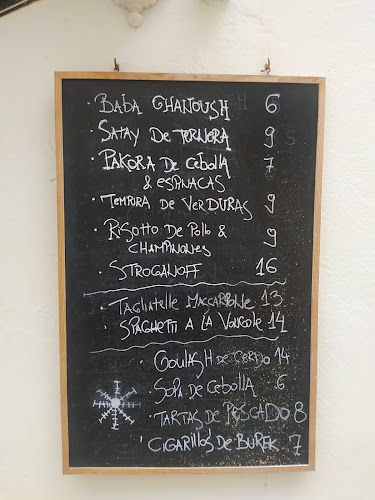 · BABA GHANOUSH 6
· SATAY DE TERNERA 9
· PAKORA DE CEBOLLA 7
& ESPINACAS
· TEMPURA DE VERDURAS 9
· RISOTTO DE POLLO & 9
CHAMPIÑONES
· STROGANOFF 16
· TAGLIATELLE MASCARPONE 13
· SPAGHETTI A LA VONGOLE 14
· GOULASH DE CERDO 14
· SOPA DE CEBOLLA 6
· TARTAS DE PESCADO 8
· CIGARILLOS DE BUREK 7